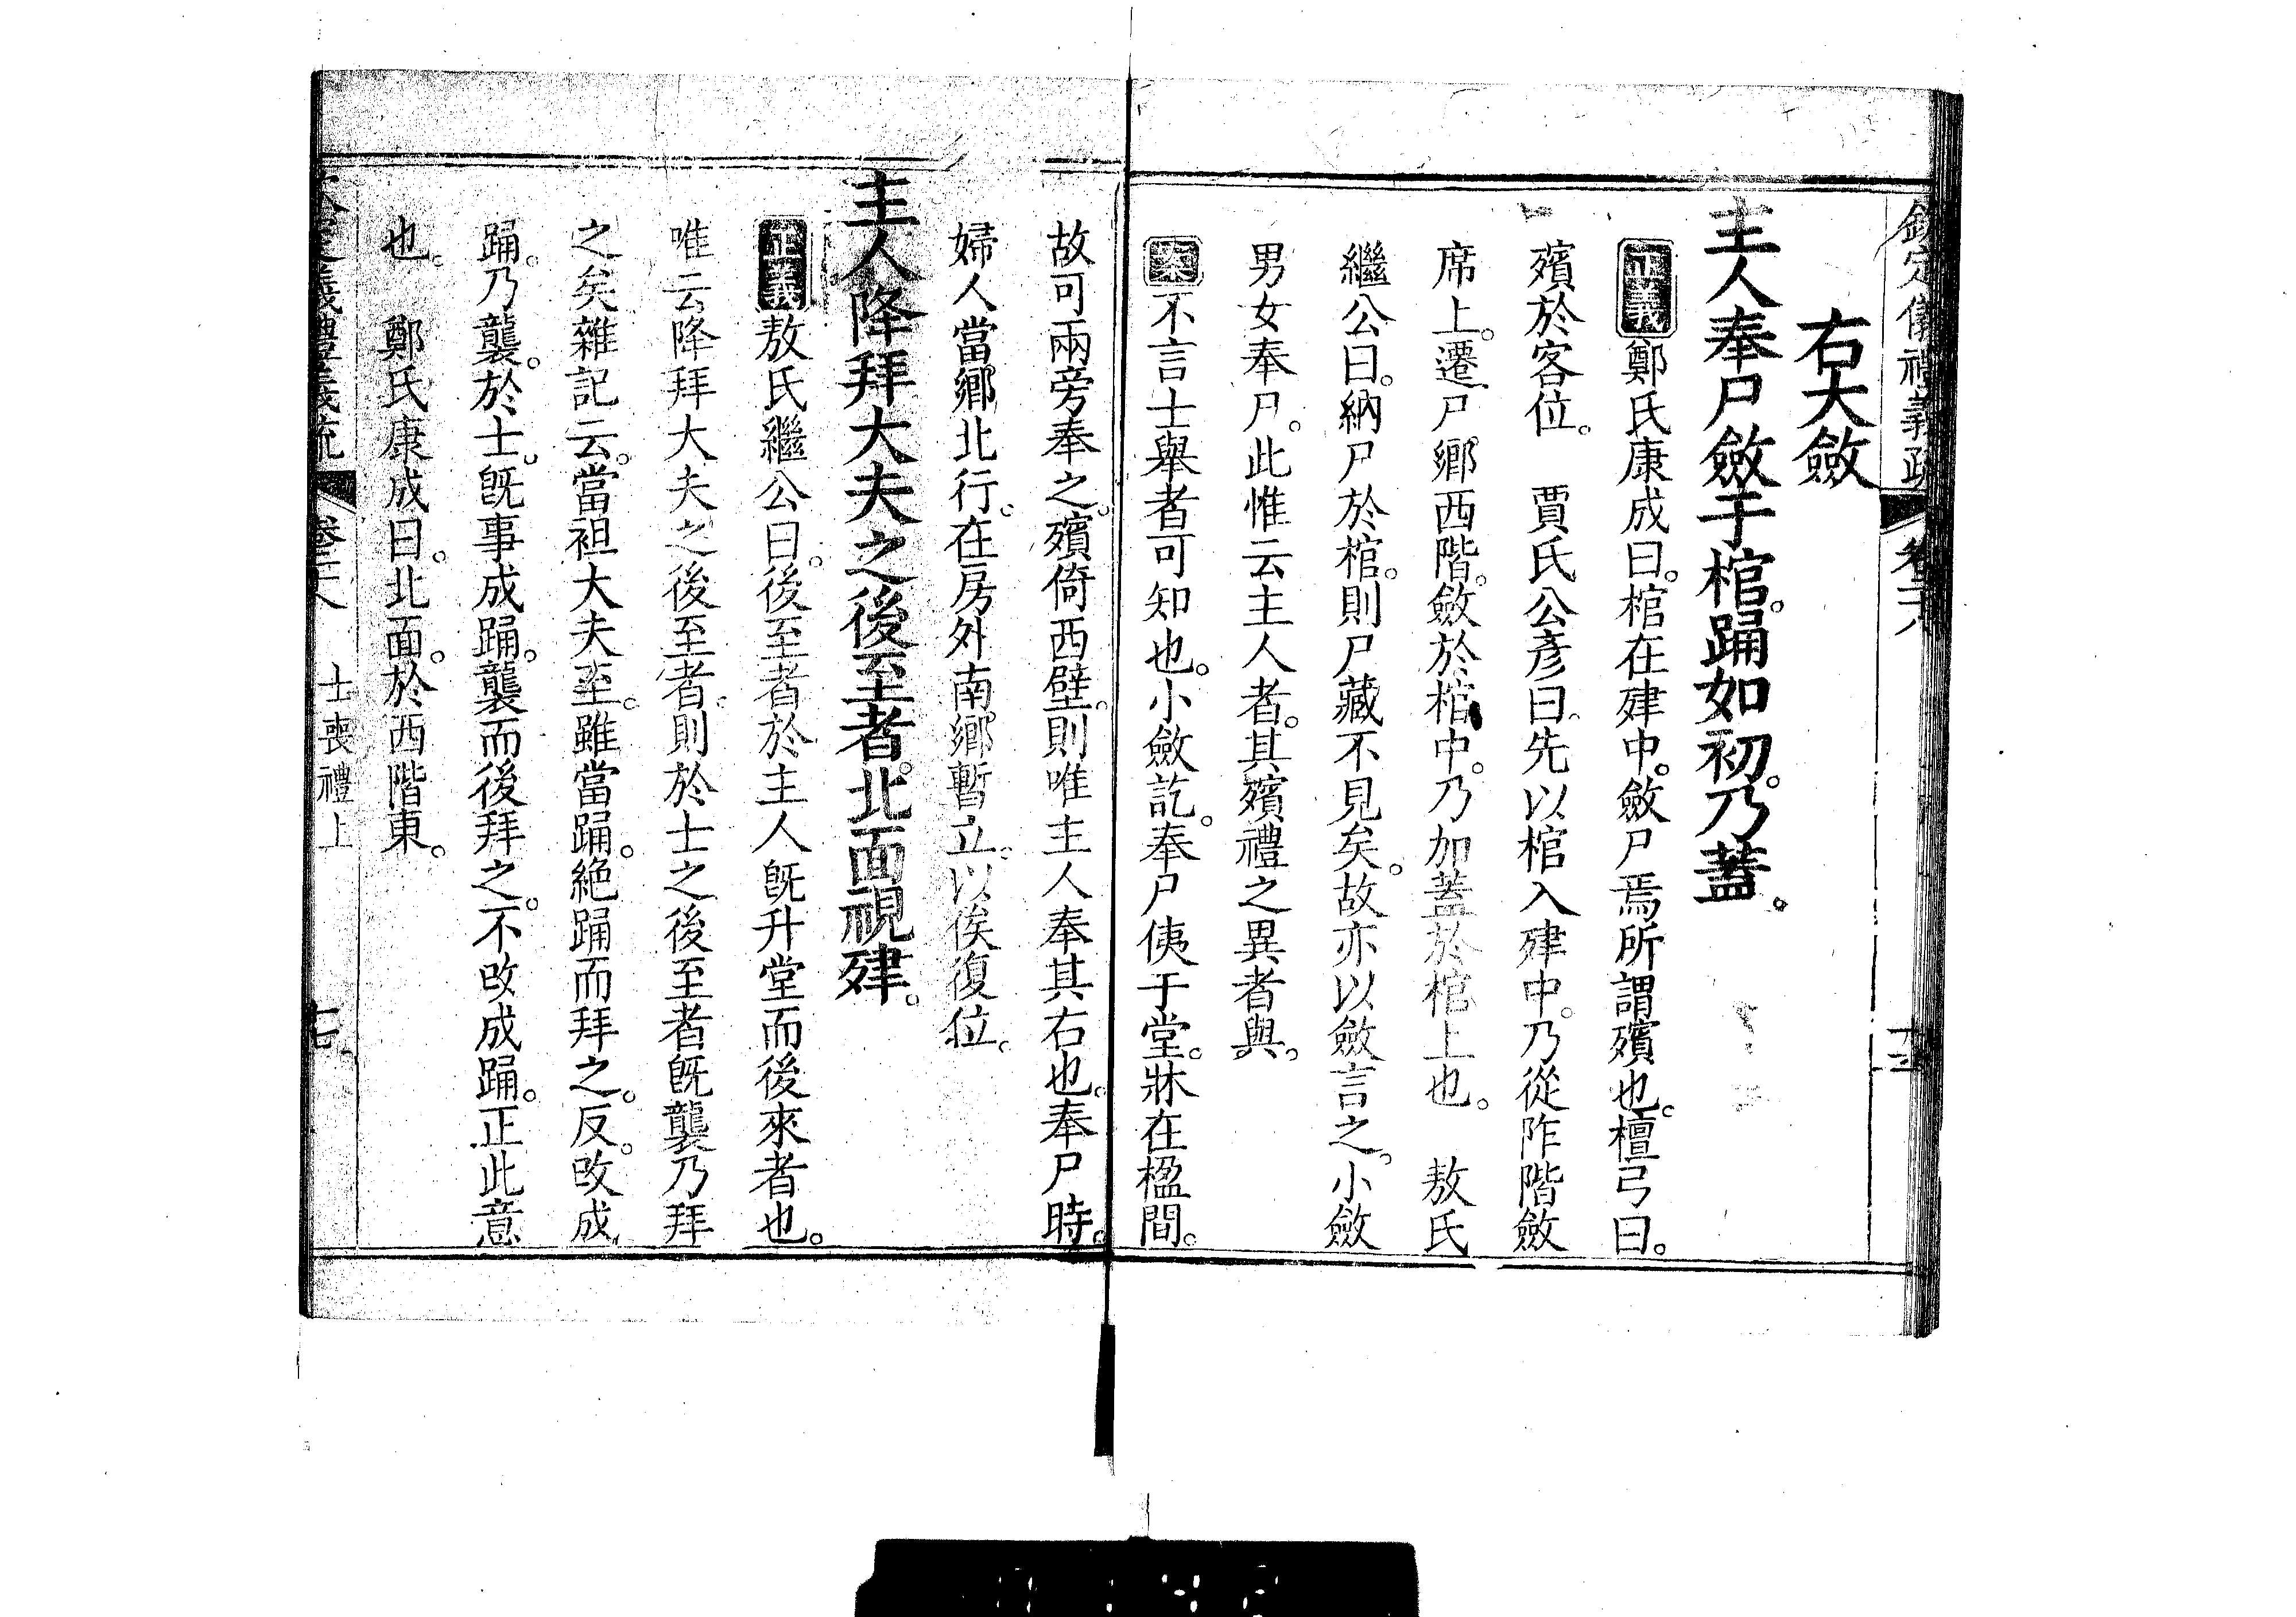 欽定儀禮義疏 卷二十八
右大斂
主人奉尸斂于棺。踊如初。乃蓋。
正義鄭氏康成曰。棺在肂中。斂尸焉所謂殯也。檀弓曰。
殯於客位。 賈氏公彥曰。先以棺入肂中。乃從阼階斂
席上。遷尸鄉西階。斂於棺中。乃加蓋於棺上也。 敖氏
繼公曰。納尸於棺。則尸藏不見矣。故亦以斂言之。小斂
男女奉尸。此惟云主人者。其殯禮之異者與。
案不言士舉者可知也。小斂訖。奉尸侇于堂。牀在楹間。
故可兩旁奉之。殯倚西壁。則唯主人奉其右也。奉尸時。
婦人當鄉北行。在房外南鄉暫立。以俟復位。
主人降拜大夫之後至者。北面視肂。
正義敖氏繼公曰。後至者於主人旣升堂而後來者也。
唯云降拜大夫之後至者。則於士之後至者旣襲乃拜
之矣雜記云。當袒大夫至。雖當踊。絶踊而拜之。反。改成
踊。乃襲。於士。旣事成踊。襲而後拜之。不改成踊。正此意
也。 鄭氏康成曰。北面。於西階東。
欽定儀禮義疏 卷二十八 士喪禮上